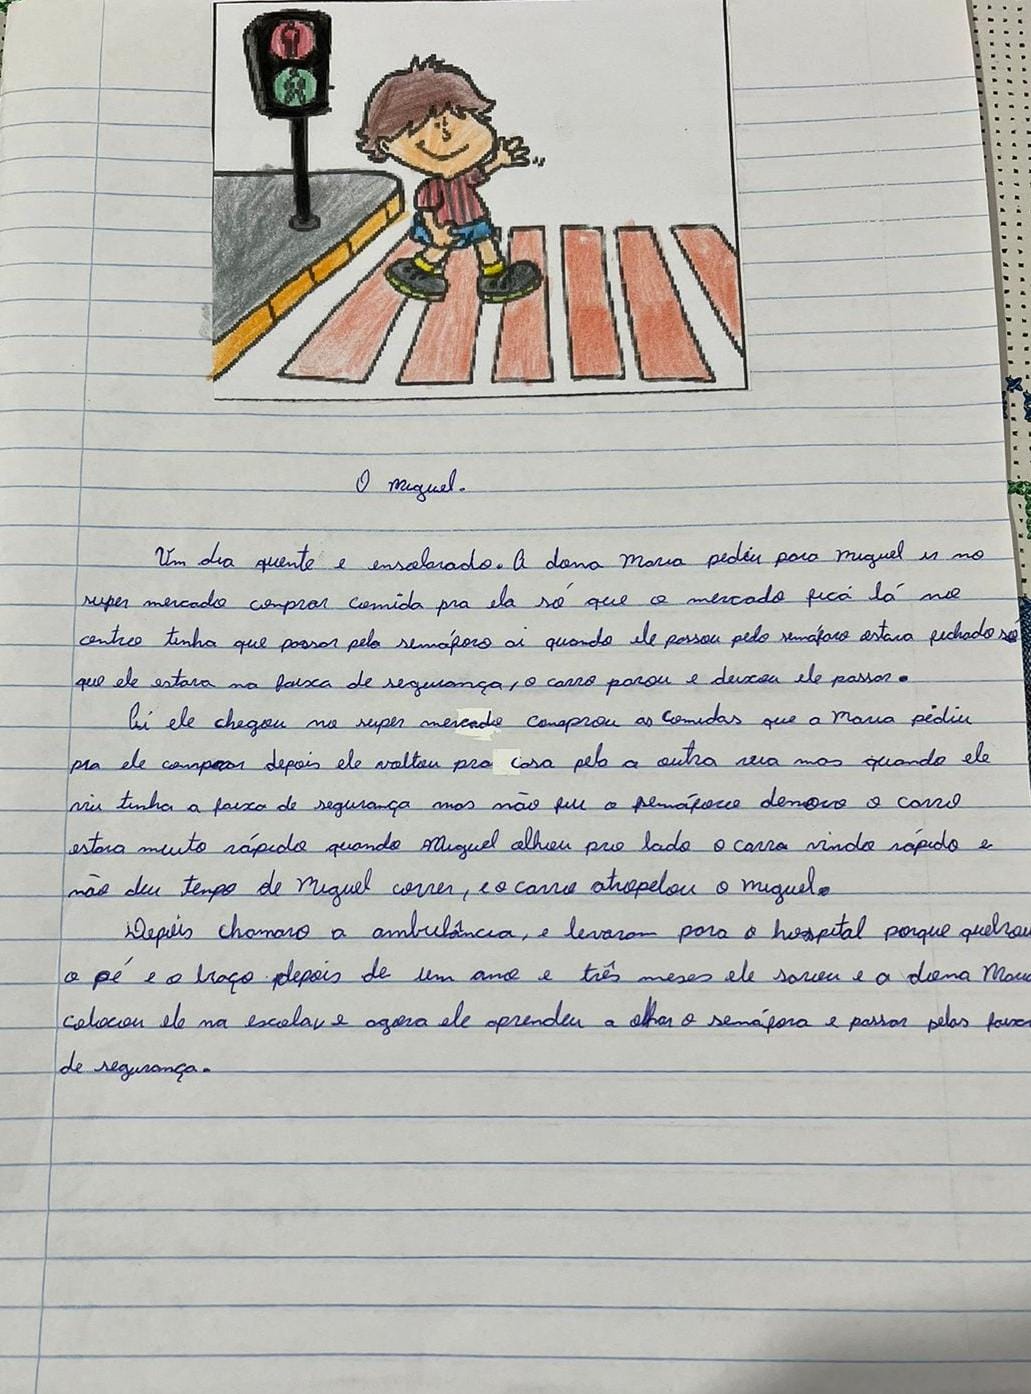 O Miguel.
Um dia quente e ensolarado. A dona Maria pediu para Miguel ir no
super mercado comprar comida pra ela só que o mercado ficá lá no
centro tinha que passar pelo semáforo ai quando ele passou pelo semáforo estava fechado só
que ele estava na faixa de segurança, o carro parou e deixou ele passar.
Ai ele chegou no super mercado comprou as comidas que a Maria pediu
pra ele comprar depois ele voltou pra casa pelo a outra rua mas quando ele
viu tinha a faixa de segurança mas não viu o semáforo denovo o carro
estava muito rápido quando Miguel olhou pro lado o carro vindo rápido e
não deu tenpo de Miguel correr, e o carro atropelou o Miguel.
Depois chamaro a ambulância, e levaram para o hospital porque quebrou
o pé e o braço depois de um ano e três meses ele sarou e a dona Maria
colocou ele na escola, e agora ele aprendeu a olhar o semáforo e passar pelas faixas
de segurança.